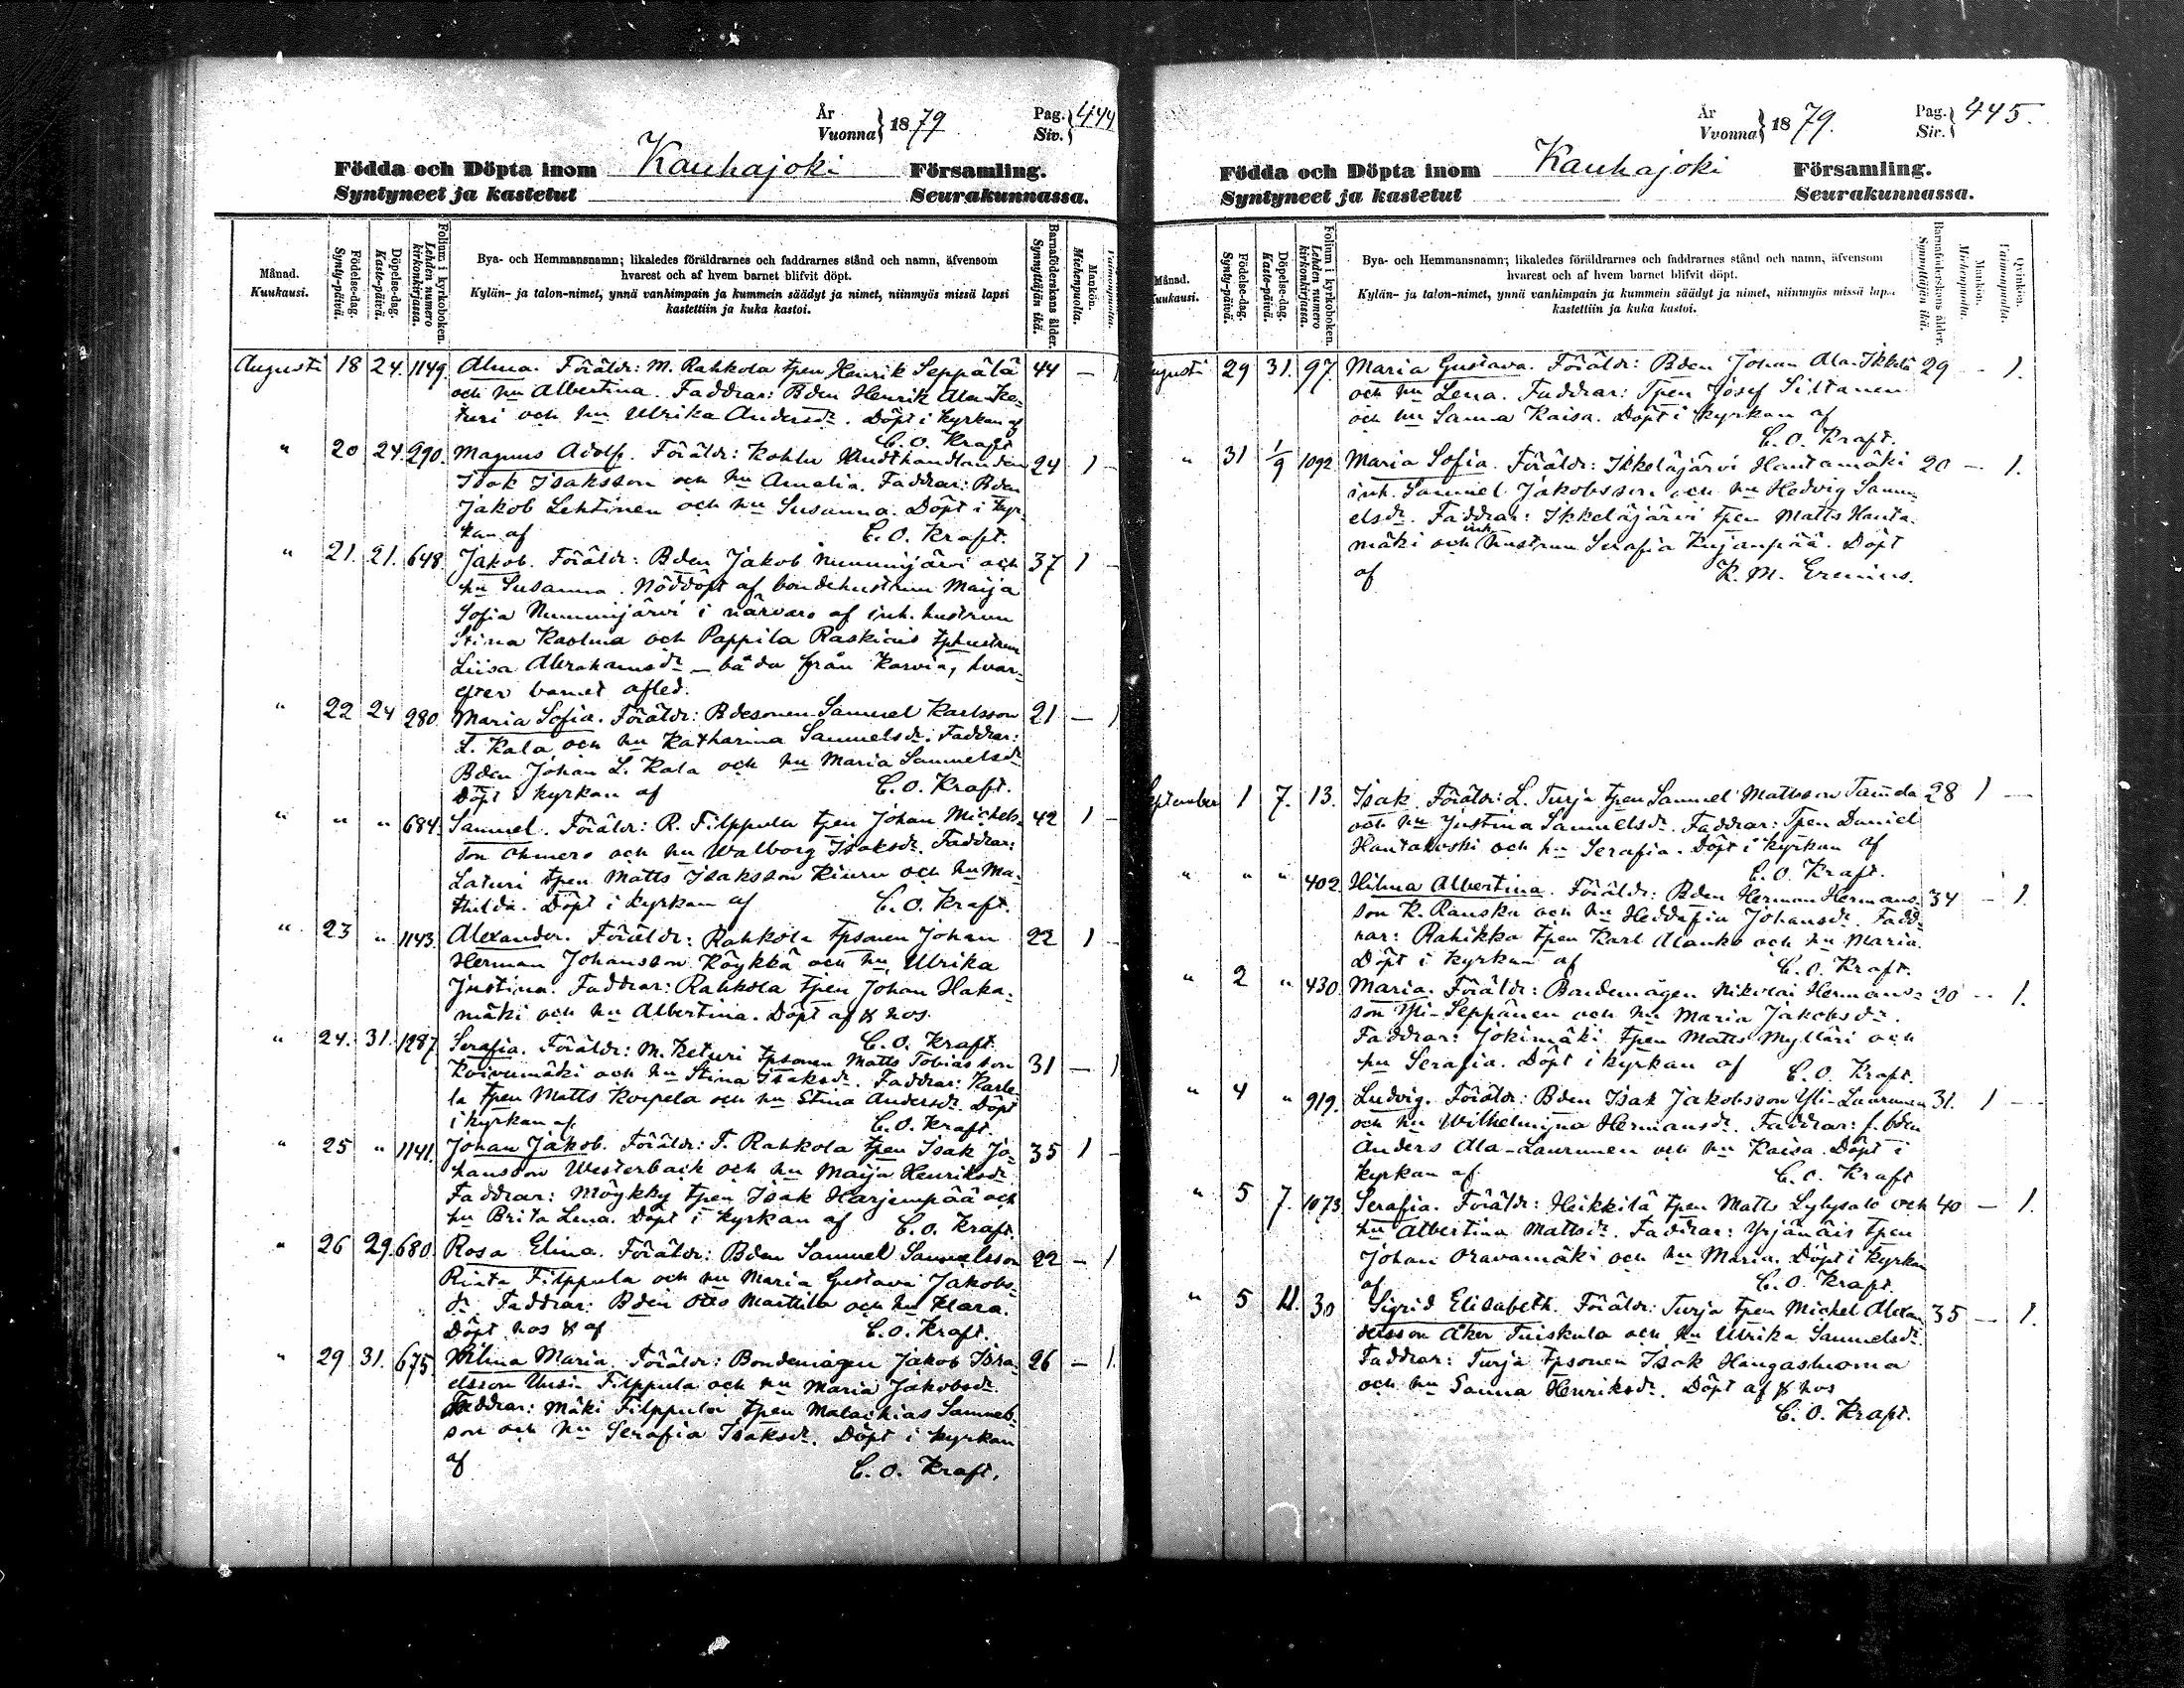 År
Vuonna } 1879 Pag.
Siv. } 444
Födda och Döpta inom Kauhajoki Församling.
Syntyneet ja kastetut Seurakunnassa.
Månad.
Kuukausi.
Födelse-dag.
Synty-päivä.
Döpelse-dag.
Kaste-päivä.
Folium i kyrkoboken.
Lehden numero kirkonkirjassa.
Bya- och Hemmansnamn; likaledes föräldrarnes och faddrarnes stånd och namn, äfvensom
hvarest och af hvem barnet blifvit döpt.
Kylän- ja talon-nimet, ynnä vanhimpain ja kummein säädyt ja nimet, niinmyös missä lapsi
kastettiin ja kuka kastoi.
Barnaföderskans ålder.
Synnyttäjän ikä.
Mankön.
Miehenpuolia.
Augusti 18 24. 1149. Alma. Föräldr: M. Rahkola tpen Henrik Seppälä 44 —
och hu Albertina. Faddrar: Bden Henrik Ala-Ke-
turi och hu Ulrika Andersdr. Döpt i kyrkan af
C. O. Kraft
" 20 24. 290. Magnus Adolf. Föräldr: Kohlu 24 1 -
Isak Isaksson och hu Amalia. Faddrar: Bden
Jakob Lehtinen och hu Susanna. Döpt i kyr-
kan af C. O. Kraft.
" 21. 21. 648. Jakob. Föräldr: Bden Jakob Nummijärvi och 37 1 -
hu Susanna. Nöddöpt af bondehustrun Maija
Sofia Nummijärvi i närvaro af inh. hustrun
Stina Kaolma och Pappila Raskius tphustrun
Liisa Abrahamsdr — båda från Karvia, hvar-
efter barnet afled.
" 22 24 280. Maria Sofia. Föräldr: Bdesonen Samuel Karlsson 21 — 1
L. Kala och hu Katharina Samuelsdr. Faddrar:
Bden Johan L. Kala och hu Maria Samuelsdr
Döpt i kyrkan af C. O. Kraft.
" " " 684. Samuel. Föräldr: R. Filppula tpen Johan Michels- 42 1 -
son Ohmero och hu Walborg Isaksdr. Faddrar:
Laturi tpen Matts Isaksson Kiuru och hu Ma-
thilda. Döpt i kyrkan af C. O. Kraft.
" 23 " 1143. Alexander. Föräldr: Rahkola tpsonen Johan 22 1 -
Herman Johansson Köykkä och hu Ulrika
Justina. Faddrar: Rahkola tpen Johan Haka-
mäki och hu Albertina. Döpt af & hos
C. O. Kraft.
" 24. 31. 1287. Serafia. Föräldr: M. Keturi tpsonen Matts Tobiasson 31 — 1
Koivumäki och hu Stina Isaksdr. Faddrar: Karle-
la tpen Matts Korpela och hu Stina Andersdr. Döpt
i kyrkan af C. O. Kraft.
" 25 " 1141. Johan Jakob. Föräldr: T. Rahkola tpen Isak Jo- 35 1 -
hansson Westerback och hu Maija Henriksdr.
Faddrar: Möykky tpen Isak Harjenpää och
hu Brita Lena. Döpt i kyrkan af C. O. Kraft.
" 26 29. 680. Rosa Elina. Föräldr: Bden Samuel Samuelsson 22 — 1
Rinta Filppula och hu Maria Gustava Jakobs-
dr. Faddrar: Bden Otto Marttila och hu Klara.
Döpt hos & af C. O. Kraft.
" 29 31. 675. Wilma Maria. Föräldr: Bondemågen Jakob Isra- 26 — 1.
elsson Uusi-Filppula och hu Maria Jakobsdr.
Faddrar: Mäki Filppula tpen Malachias Samuels-
son och hu Serafia Isaksdr. Döpt i kyrkan
af C. O. Kraft.
År
Vvonna } 1879. Pag.
Siv. } 445.
Födda och Döpta inom Kauhajoki Församling.
Syntyneet ja kastetut Seurakunnassa.
Födelse-dag.
Synty-päivä.
Döpelse-dag.
Kaste-päivä.
Folium i kyrkoboken.
Lehden numero kirkonkirjassa.
Bya- och Hemmansnamn; likaledes föräldrarnes och faddrarnes stånd och namn, äfvensom
hvarest och af hvem barnet blifvit döpt.
Kylän- ja talon-nimet, ynnä vanhimpain ja kummein säädyt ja nimet, niinmyös missä lap..
kastettiin ja kuka kastoi.
Barnaföderskans ålder.
Synnyttäjän ikä.
Mankön.
Miehenpuolia.
Qvinkön.
Vaimonpuolia.
29 31. 97. Maria Gustava. Föräldr: Bden Johan 29 — 1.
och hu Lena. Faddrar: Tpen Josef Siltanen
och hu Sanna Kaisa. Döpt i kyrkan af
C. O. Kraft.
" 31 1/9 1092 Maria Sofia. Föräldr: Ikkeläjärvi Hautamäki 20 — 1.
inh. Samuel Jakobsson och hu Hedvig Samu-
elsdr. Faddrar: Ikkeläjärvi tpen Matts Hauta-
mäki och inh. hustrun Serafia Kujanpää. Döpt
af K. M. Erenius.
September 1 7. 13. Isak. Föräldr: L. Turja tpen Samuel Mattsson 28 1 —
och hu Justina Samuelsdr. Faddrar: Tpen Daniel
Hautakoski och hu Serafia. Döpt i kyrkan af
C. O. Kraft.
" " " 402. Hilma Albertina. Föräldr: Bden Herman Hermans- 34 — 1.
son K. Ranska och hu Heddafia Johansdr. Fadd-
rar: Rahikka tpen Karl Alanko och hu Maria.
Döpt i kyrkan af C. O. Kraft.
" 2 " 430. Maria. Föräldr: Bondemågen Nikolai Hermans- 20 — 1.
son Yli-Seppänen och hu Maria Jakobsdr.
Faddrar: Jokimäki tpen Matts Mylläri och
hu Serafia. Döpt i kyrkan af C. O. Kraft.
" 4 " 919. Ludvig. Föräldr: Bden Isak Jakobsson Yli-Laurunen 31. 1 —
och hu Wilhelmina Hermansdr. Faddrar: f. bden
Anders Ala-Laurunen och hu Kaisa. Döpt i
kyrkan af C. O. Kraft
" 5 7. 1073. Serafia. Föräldr: Heikkilä tpen Matts Lylysalo och 40 — 1.
hu Albertina Mattsdr. Faddrar: Yrjänäis tpen
Johan Oravamäki och hu Maria. Döpt i kyrkan
af C. O. Kraft.
" 5 11. 30 Sigrid Elisabeth. Föräldr: Turja tpen Michel Alexan- 35 — 1.
dersson Åker Tuiskula och hu Ulrika Samuelsdr.
Faddrar: Turja tpsonen Isak Hangasluoma
och hu Sanna Henriksdr. Döpt af & hos
C. O. Kraft.